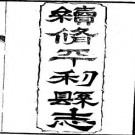 續脩平利縣志